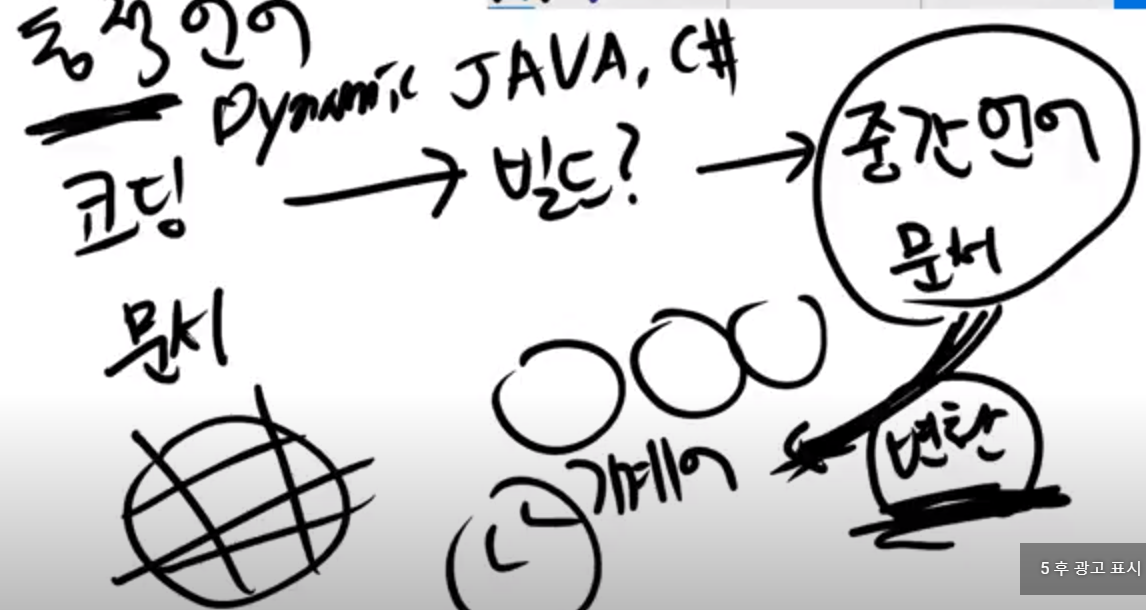 동적 언어
Dynamic JAVA, C#
코딩 → 빌드? → 중간언어
문서
문서
변환
기계어
5 후 광고 표시